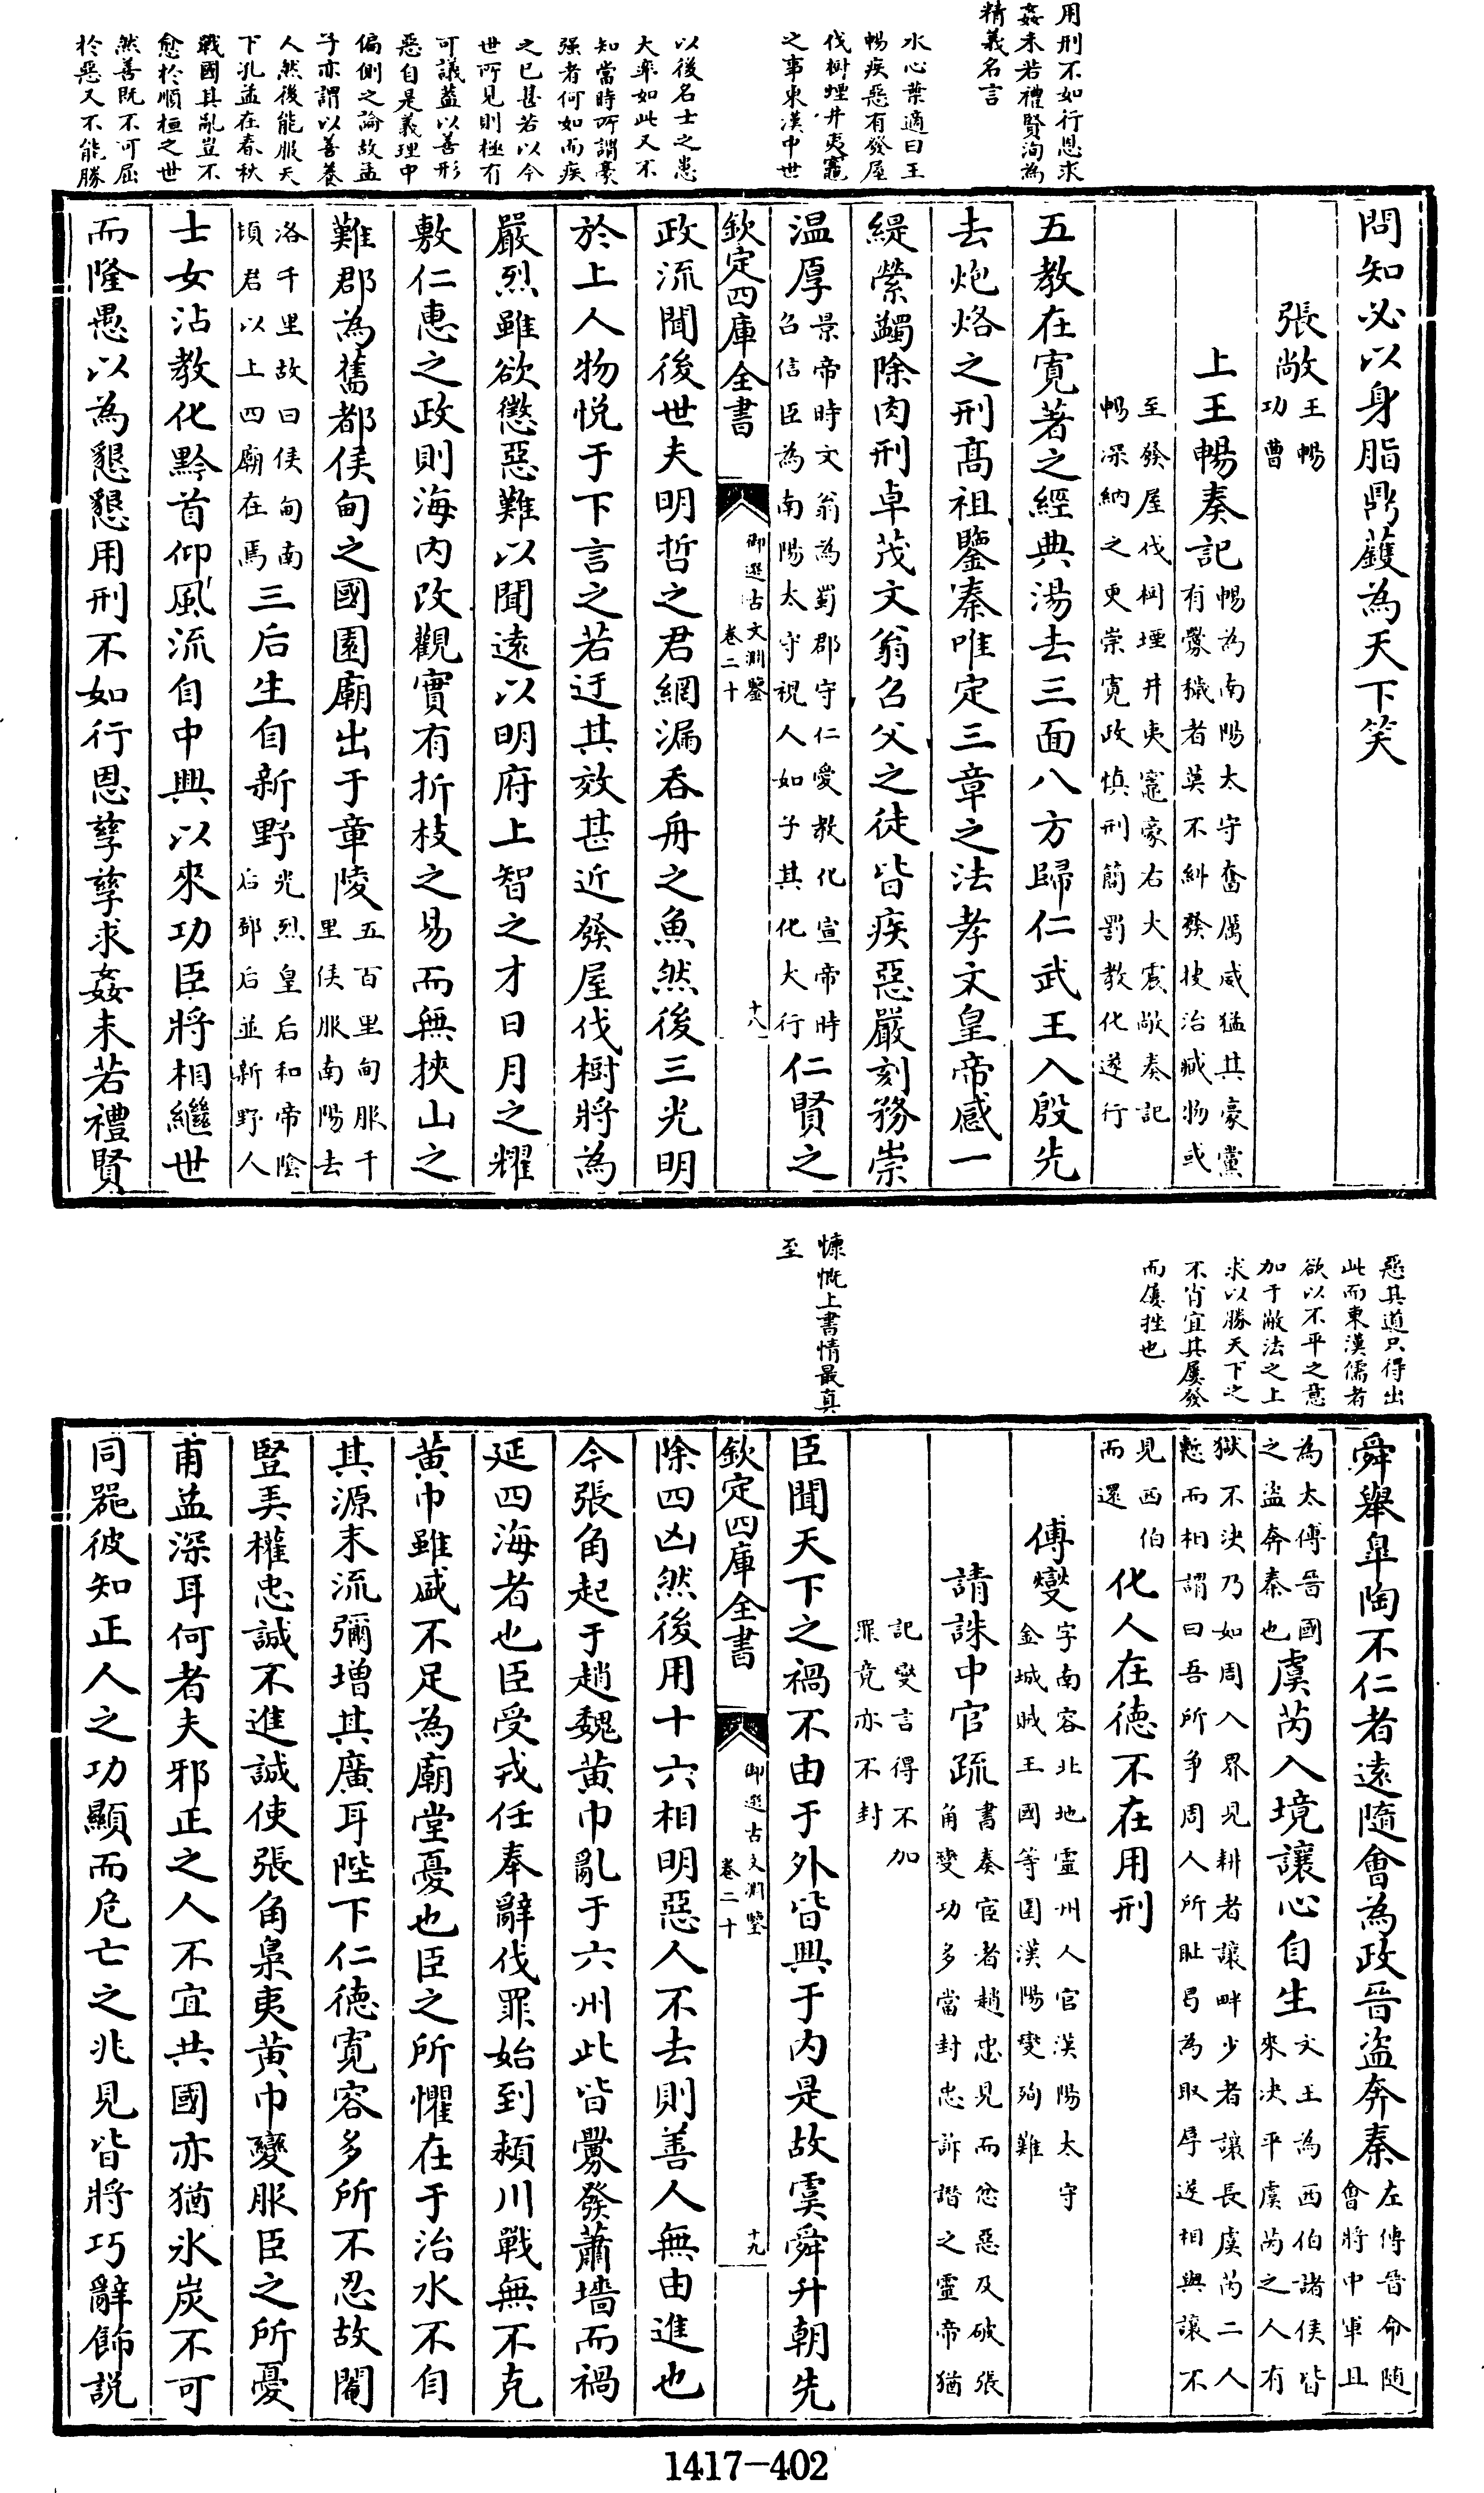 用刑不如行恩求
姦未若禮賢洵為
精義名言
水心葉適曰王
暢疾惡有發屋
伐樹堙井夷竈
之事東漢中世
以後名士之患
大率如此又不
知當時所謂豪
强者何如而疾
之已甚若以今
世所見則極有
可議葢以善形
惡自是義理中
偏側之論故孟
子亦謂以善養
人然後能服天
下孔孟在春秋
戰國其亂豈不
愈於順桓之世
然善既不可屈
於惡又不能勝
問知必以身脂鼎鑊為天下笑
張敞王暢功曹
上王暢奏記暢為南陽太守奮厲威猛其豪黨有釁穢者莫不糾發㨗治臧物或
至發屋伐樹堙井夷竈豪右大震敞奏記暢深納之更崇寛政慎刑簡罰教化遂行
五教在寛著之經典湯去三面八方歸仁武王入殷先
去炮烙之刑高祖鑒秦唯定三章之法孝文皇帝感一
緹縈蠲除肉刑卓茂文翁召父之徒皆疾惡嚴刻務崇
温厚景帝時文翁為蜀郡守仁愛教化宣帝時召信臣為南陽太守視人如子其化大行仁賢之
欽定四庫全書
御選古文淵鑒
卷二十
十八
政流聞後世夫明哲之君網漏吞舟之魚然後三光明
於上人物悅于下言之若迂其效甚近發屋伐樹將為
嚴烈雖欲懲惡難以聞遠以明府上智之才日月之耀
敷仁惠之政則海内改觀實有折枝之易而無挾山之
難郡為舊都侯甸之國園廟出于章陵五百里甸服千里侯服南陽去
洛千里故曰侯甸南頓君以上四廟在焉三后生自新野光烈皇后和帝陰后鄧后並新野人
士女沾教化黔首仰風流自中興以來功臣將相繼世
而隆愚以為懇懇用刑不如行恩孳孳求姦未若禮賢
惡其道只得出
此而東漢儒者
欲以不平之意
加于敝法之上
求以勝天下之
不肖宜其屢發
而屢挫也
慷慨上書情最真
至
舜舉臯陶不仁者遠隨會為政晉盗奔秦左傳晉命隨會將中軍且
為太傅晉國之盜奔秦也虞芮入境讓心自生文王為西伯諸侯皆來决平虞芮之人有
獄不決乃如周入界見耕者讓畔少者讓長虞芮二人慙而相謂曰吾所爭周人所恥曷為取辱遂相與讓不
見西伯而還化人在徳不在用刑
傅燮字南容北地靈州人官漢陽太守金城賊王國等圍漢陽燮殉難
請誅中官疏書奏宦者趙忠見而忿惡及破張角燮功多當封忠訴譖之靈帝猶
記燮言得不加罪竟亦不封
臣聞天下之禍不由于外皆興于内是故虞舜升朝先
欽定四庫全書
御選古文淵鑒
卷二十
十九
除四凶然後用十六相明惡人不去則善人無由進也
今張角起于趙魏黄巾亂于六州此皆釁發蕭墻而禍
延四海者也臣受戎任奉辭伐罪始到潁川戰無不克
黄巾雖盛不足為廟堂憂也臣之所懼在于治水不自
其源末流彌增其廣耳陛下仁徳寛容多所不忍故閹
豎弄權忠誠不進誠使張角梟夷黄巾變服臣之所憂
甫益深耳何者夫邪正之人不宜共國亦猶氷炭不可
同器彼知正人之功顯而危亡之兆見皆將巧辭飾説
1417—402